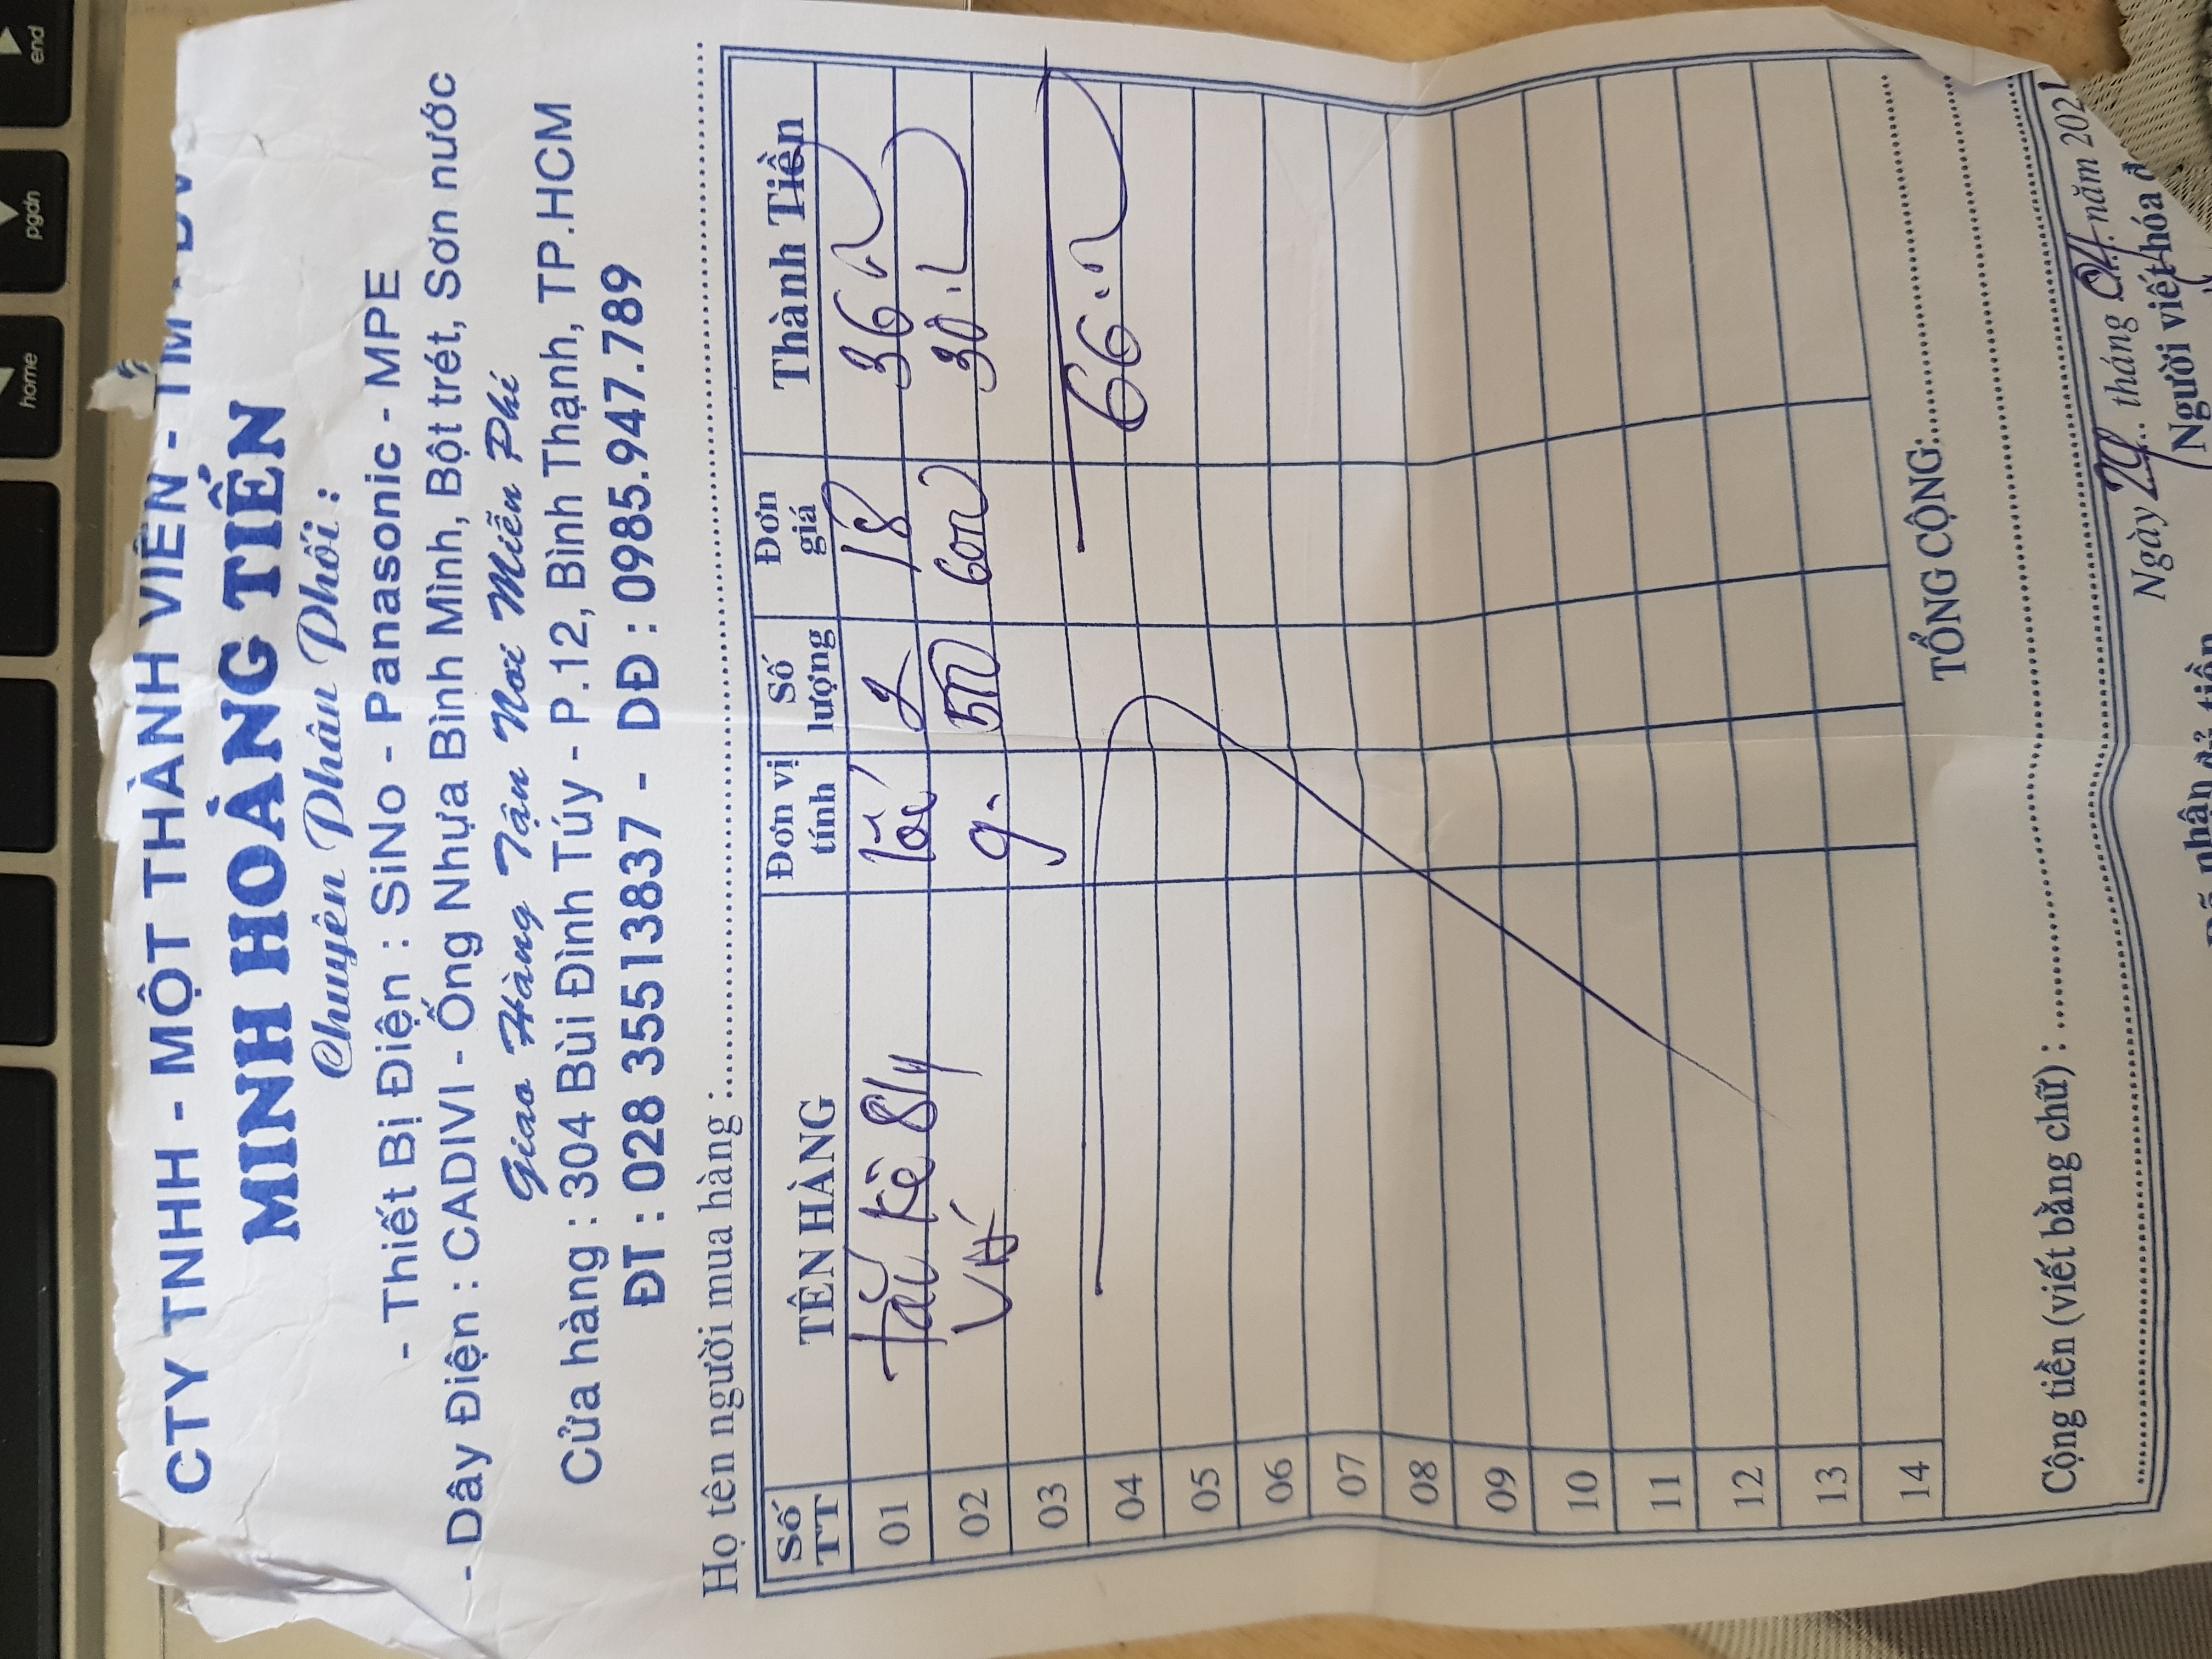 CTY TNHH - MỘT THÀNH VIÊN - TM
MINH HOÀNG TIẾN
Chuyên Phân Phối :
- Thiết Bị Điện : SiNo - Panasonic - MPE
- Dây Điện : CADIVI - Ống Nhựa Bình Minh, Bột trét, Sơn nước
Giao Hàng Tận Nơi Miễn Phí
Cửa hàng : 304 Bùi Đình Túy - P.12, Bình Thạnh, TP.HCM
ĐT : 028 35513837 - DĐ : 0985.947.789
Họ tên người mua hàng :
Số TT TÊN HÀNG Đơn vị tính Số lượng Đơn giá Thành Tiền
01 Tắc kê 8ly 2 18 36
02 g. 500 600 30
03
04 66
05
06
07
08
09
10
11
12
13
14
TỔNG CỘNG
Cộng tiền (viết bằng chữ) :
Ngày 29 tháng 04 năm 2021
nhận đủ tiền Người viết hóa đ
end
pgdn
home